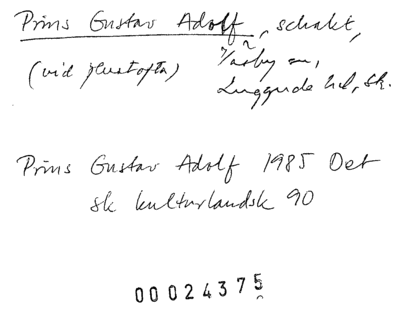 Prins Gustav Adolf, schakt,
(vid Gustafta) Väsby sn,
Luggude hd, Sk.
Prins Gustav Adolf 1985 Det
sk kulturlandsk 90
00024375